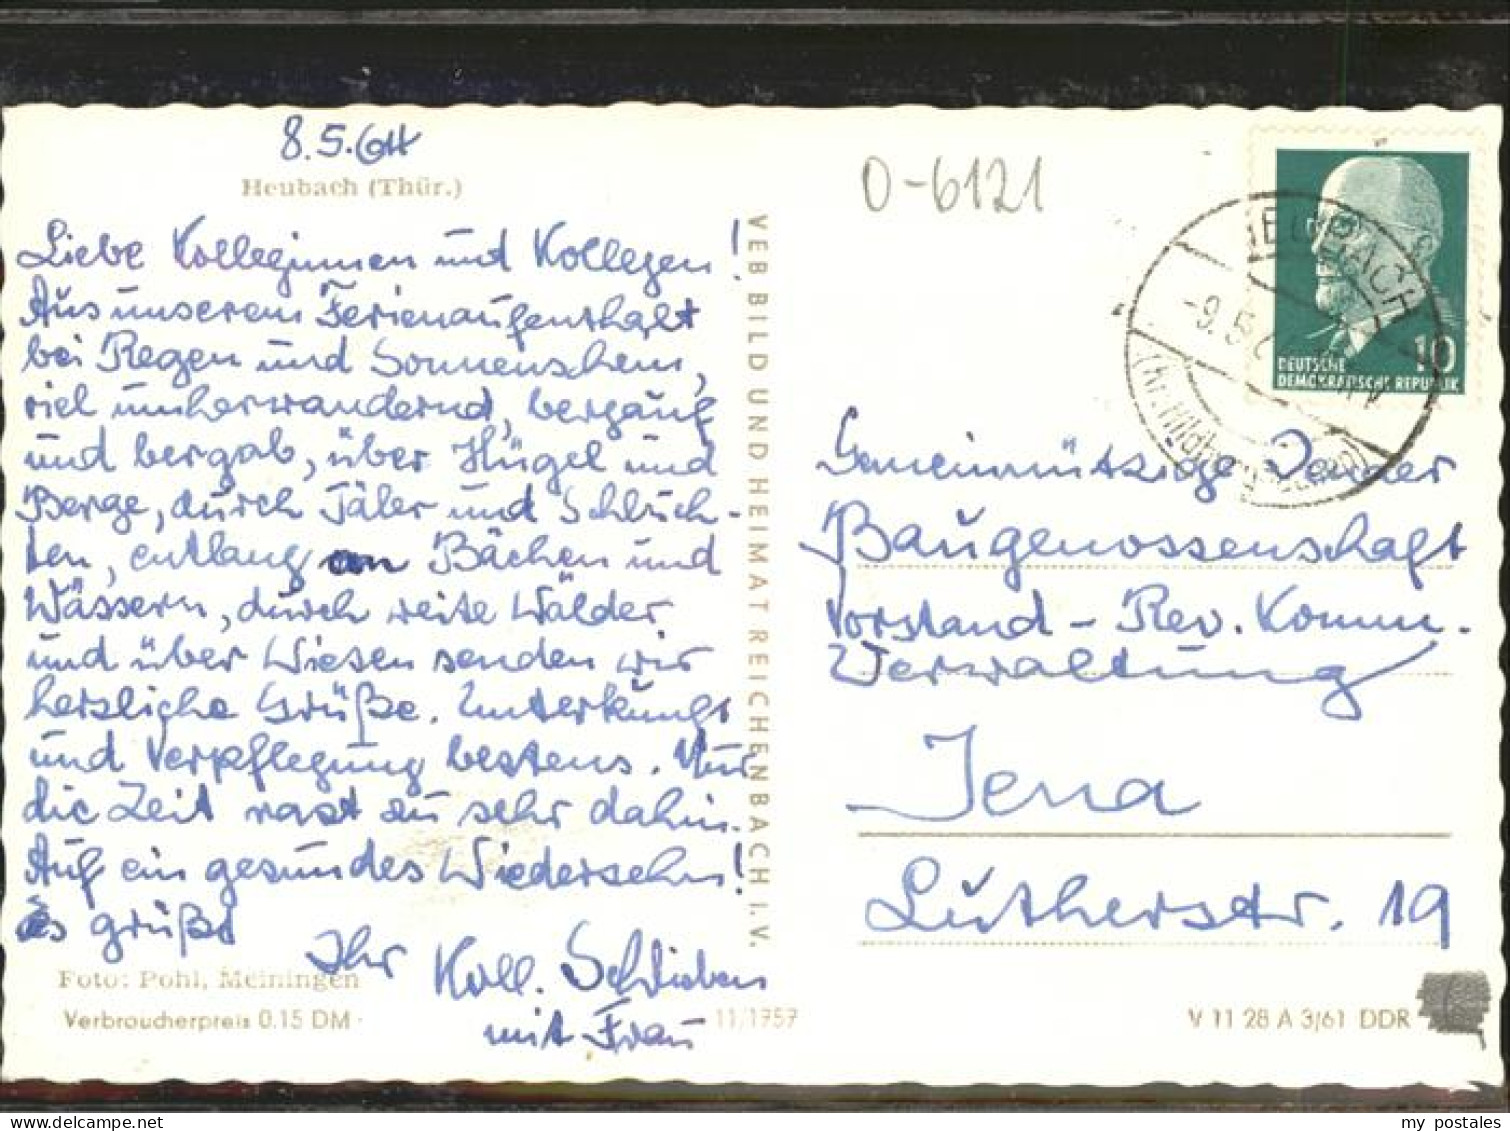 8.5.64
Heubach (Thür.)
Liebe Kolleginnen und Kollegen!
Aus unserem Ferienaufenthalt
bei Regen und Sonnenschein,
viel umherwandernd, bergauf
und bergab, über Hügel und
Berge, durch Täler und Schluch-
ten, entlang an Bächen und
Wässern, durch weite Wälder
und über Wiesen senden wir
herzliche Grüße. Unterkunft
und Verpflegung bestens. Nur
die Zeit rast zu sehr dahin.
Auf ein gesundes Wiedersehn!
Es grüßt
Ihr Koll.
mit Frau
Foto: Pohl, Meiningen
Verbraucherpreis 0.15 DM
11/1757
VEB BILD UND HEIMAT REICHENBACH I.V.
0-6121
HEUBACH
-9.5.
(Kr. Hildburghausen)
10
DEUTSCHE
DEMOKRATISCHE REPUBLIK
Gemeinnützige Jenaer
Baugenossenschaft
Vorstand - Rev. Komm.
Verwaltung
Jena
Lutherstr. 19
V 11 28 A 3/61 DDR
my postales